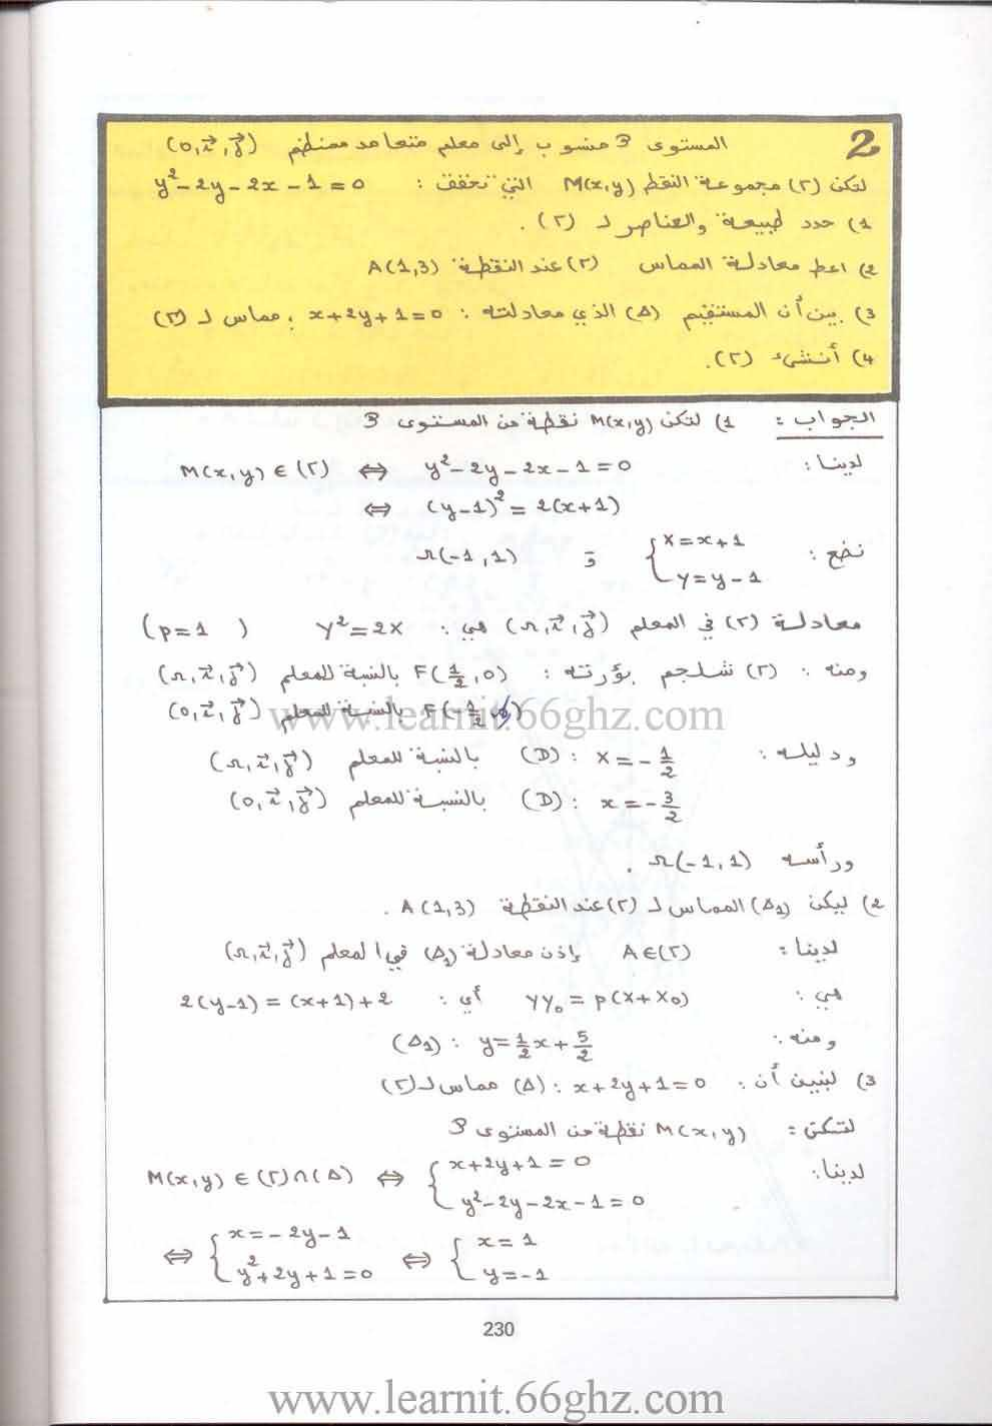 2
المستوى P منسوب إلى معلم متعامد ممنظم (O,i⃗,j⃗)
لتكن (Γ) مجموعة النقط M(x,y) التي تحقق : y²-2y-2x-1=0
1) حدد طبيعة والعناصر لـ (Γ).
2) اعط معادلة المماس (Γ) عند النقطة A(1,3)
3) بين أن المستقيم (Δ) الذي معادلته : x+2y+1=0 ; مماس لـ (Γ)
4) أنشئ (Γ).
الجواب : 1) لتكن M(x,y) نقطة من المستوى P
لدينا : M(x,y) ∈ (Γ) ⇔ y²-2y-2x-1=0
⇔ (y-1)²=2(x+1)
نضع : { X=x+1 Y=y-1 و Ω(-1,1)
معادلة (Γ) في المعلم (Ω,i⃗,j⃗) هي : Y²=2X (p=1)
ومنه : (Γ) شلجم بؤرته : F(1/2,0) بالنسبة للمعلم (Ω,i⃗,j⃗)
F(-1/2, بالنسبة للمعلم (O,i⃗,j⃗)
ودليله : (D) : X=-1/2 بالنسبة للمعلم (Ω,i⃗,j⃗)
(D) : x=-3/2 بالنسبة للمعلم (O,i⃗,j⃗)
ورأسه Ω(-1,1) .
2) ليكن (Δ1) المماس لـ (Γ) عند النقطة A(1,3) .
لدينا : A∈(Γ) إذن معادلة (Δ1) في المعلم (Ω,i⃗,j⃗)
هي : YY₀=p(X+X₀) أي : 2(y-1)=(x+1)+2
ومنه : (Δ1) : y=1/2x+5/2
3) لنبين أن : (Δ) : x+2y+1=0 مماس لـ (Γ)
لتكن : M(x,y) نقطة من المستوى P
لدينا : M(x,y) ∈ (Γ)∩(Δ) ⇔ { x+2y+1=0 y²-2y-2x-1=0
⇔ { x=-2y-1 y²+2y+1=0 ⇔ { x=1 y=-1
230
www.learnit.66ghz.com
www.learnit.66ghz.com